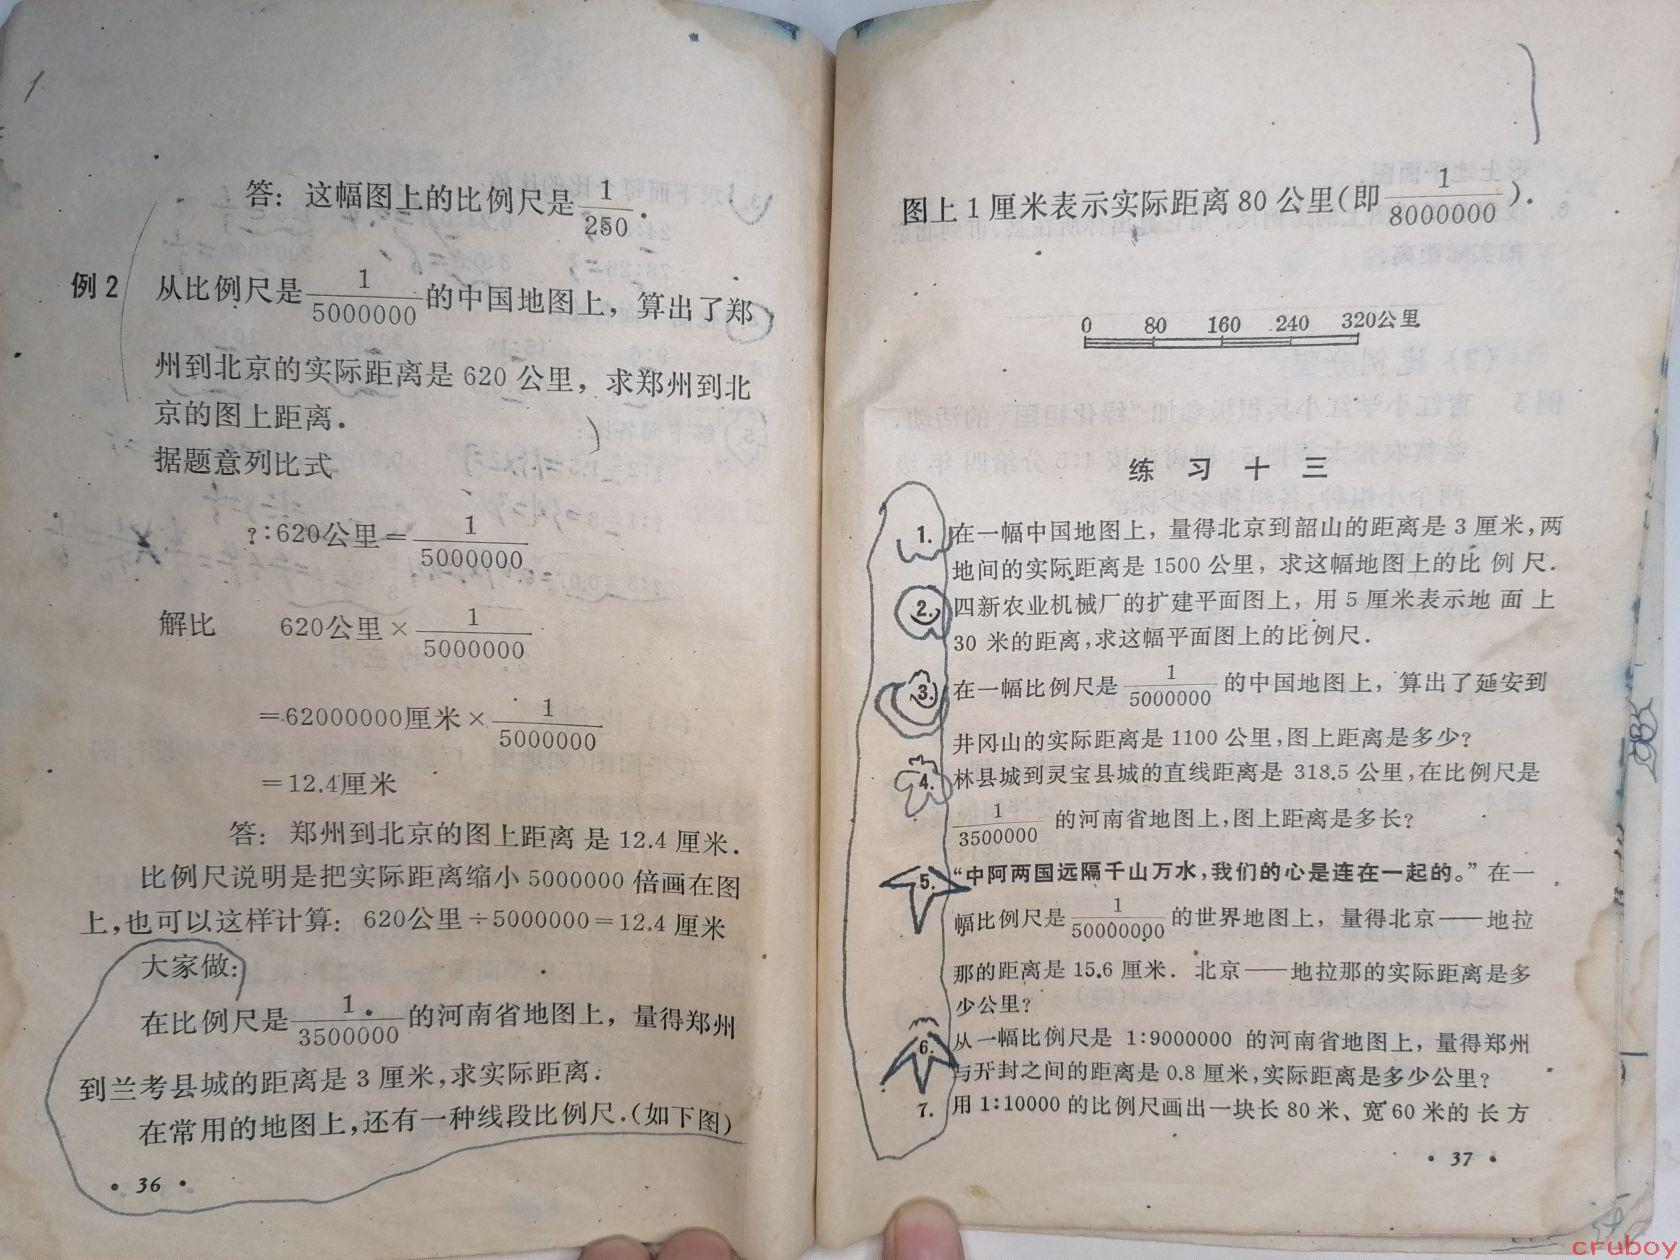 答：这幅图上的比例尺是1/250．
例2 从比例尺是1/5000000的中国地图上，算出了郑
州到北京的实际距离是620公里，求郑州到北
京的图上距离．
据题意列比式
?:620公里=1/5000000
解比 620公里×1/5000000
=62000000厘米×1/5000000
=12.4厘米
答：郑州到北京的图上距离是12.4厘米．
比例尺说明是把实际距离缩小5000000倍画在图
上，也可以这样计算：620公里÷5000000=12.4厘米
大家做：
在比例尺是1/3500000的河南省地图上，量得郑州
到兰考县城的距离是3厘米，求实际距离．
在常用的地图上，还有一种线段比例尺．（如下图）
·36·
图上1厘米表示实际距离80公里（即1/8000000）．
0 80 160 240 320公里
练习十三
1. 在一幅中国地图上，量得北京到韶山的距离是3厘米，两
地间的实际距离是1500公里，求这幅地图上的比例尺．
2. 四新农业机械厂的扩建平面图上，用5厘米表示地面上
30米的距离，求这幅平面图上的比例尺．
3. 在一幅比例尺是1/5000000的中国地图上，算出了延安到
井冈山的实际距离是1100公里，图上距离是多少？
4. 林县城到灵宝县城的直线距离是318.5公里，在比例尺是
1/3500000的河南省地图上，图上距离是多长？
5. “中阿两国远隔千山万水，我们的心是连在一起的。”在一
幅比例尺是1/50000000的世界地图上，量得北京——地拉
那的距离是15.6厘米．北京——地拉那的实际距离是多
少公里？
6. 从一幅比例尺是1:9000000的河南省地图上，量得郑州
与开封之间的距离是0.8厘米，实际距离是多少公里？
7. 用1:10000的比例尺画出一块长80米、宽60米的长方
·37·
cruboy